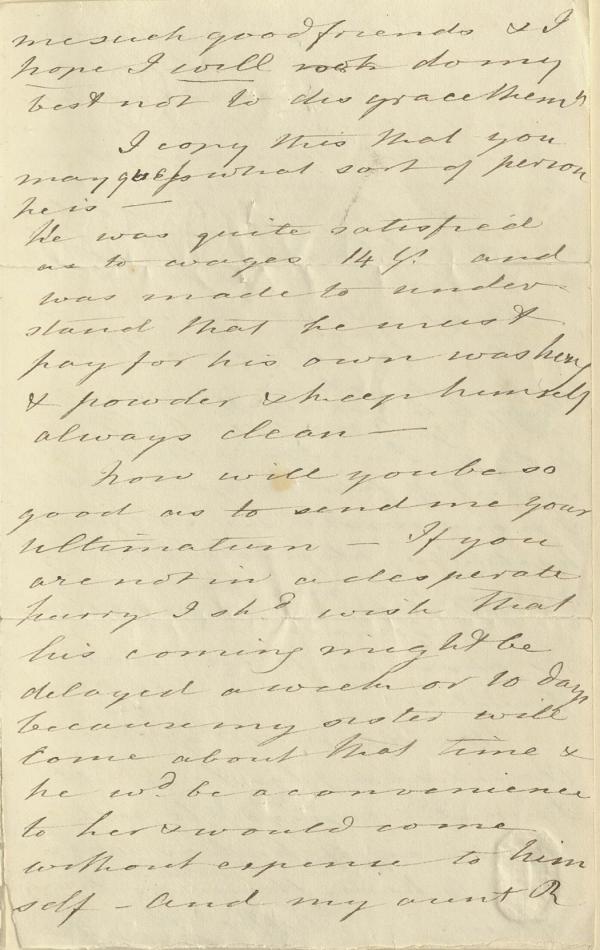 me such good friends & I
hope I will not do my
best not to disgrace them"
I copy this that you
may guess what sort of person
he is —
He was quite satisfied
as to wages 14 G.s and
was made to under-
stand that he must
pay for his own washing
& powder & keep himself
always clean —
Now will you be so
good as to send me your
ultimatum — If you
are not in a desperate
hurry I shd wish that
his coming might be
delayed a week or 10 days
because my sister will
come about that time &
he wd be a convenience
to her & would come
without expense to him
self – And my aunt R